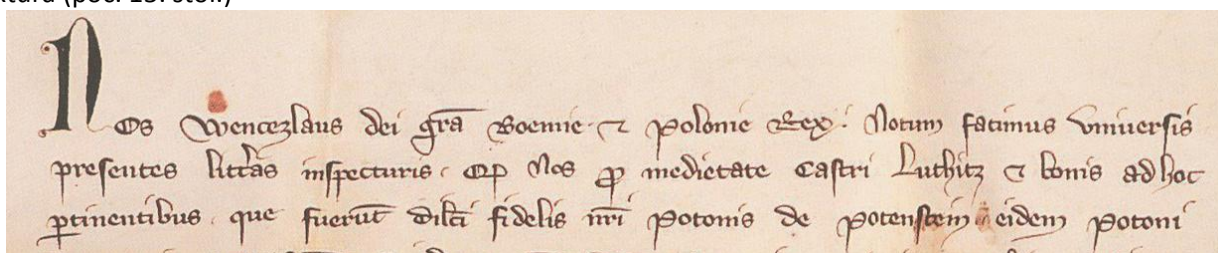 Nos Wenczlaus dei gra Boemie ⁊ Polonie Rex. Notum facimus vniuersis
presentes litteras inspecturis. Qd Nos pro medietate Castri Luthitz ⁊ bonis ad hoc
ptinentibus. que fuerut dilcti fidelis nri Potonis de Potenstein eidem Potoni